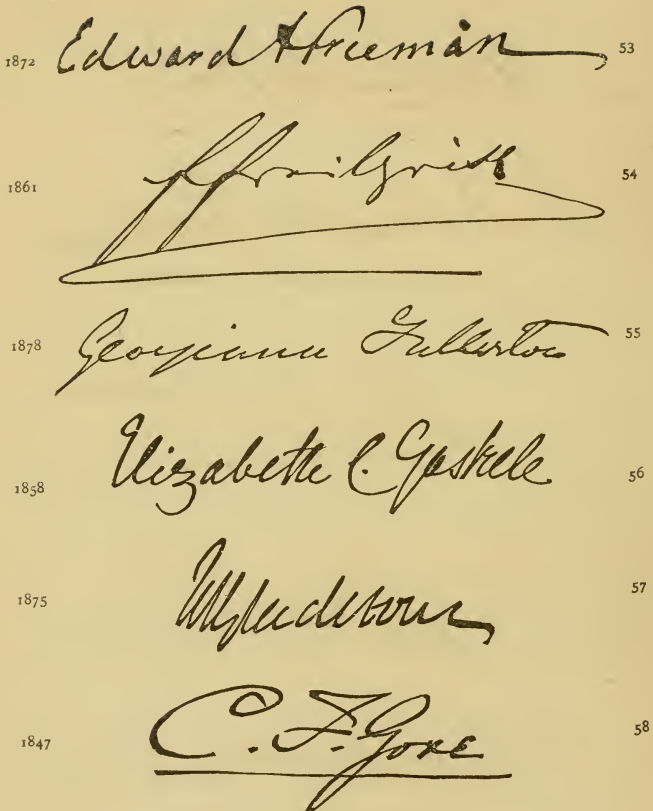 1872 Edward A Freeman 53
1861 FFreiligrath 54
1878 Georgiana Fullerton 55
1858 Elizabeth C. Gaskell 56
1875 WEGladstone 57
1847 C. F. Gore 58